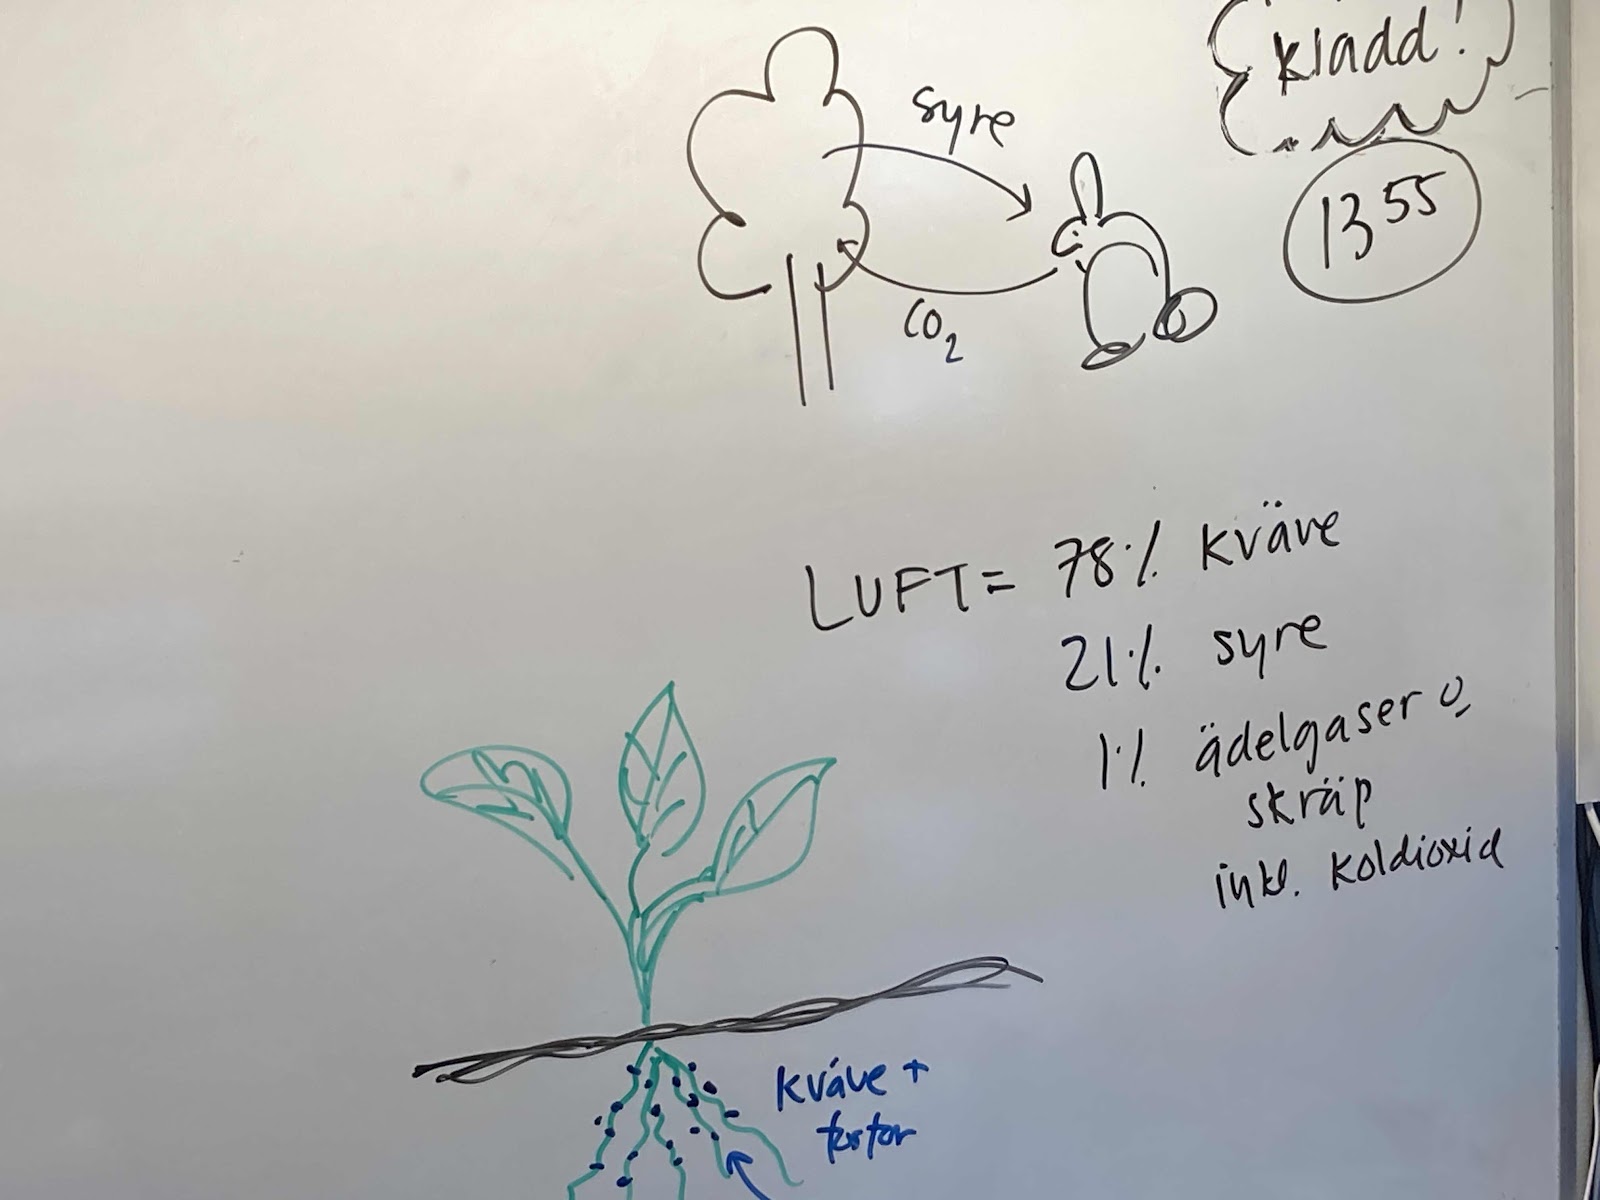 kladd!
13 55
syre
CO2
LUFT = 78% kväve
21% syre
1% ädelgaser o
skräp
inkl. koldioxid
kväve +